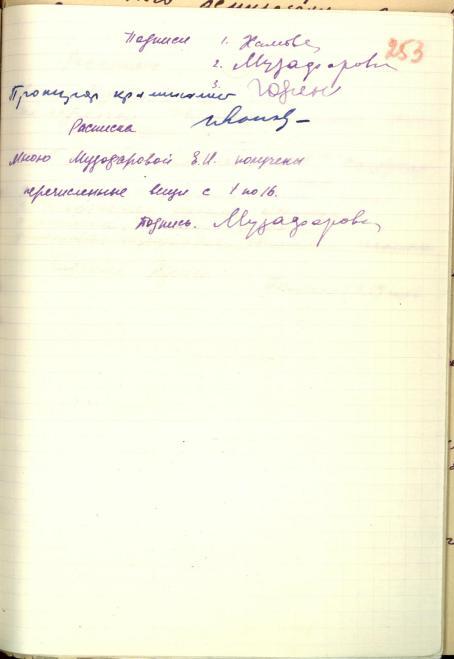 253
Подписи 1. Хамов
2. Музафарова
3. Годен
Прокурор криминалист
Расписка
Мною Музафаровой Е.И. получены
перечисленные вещи с 1 по 16.
подпись. Музафарова